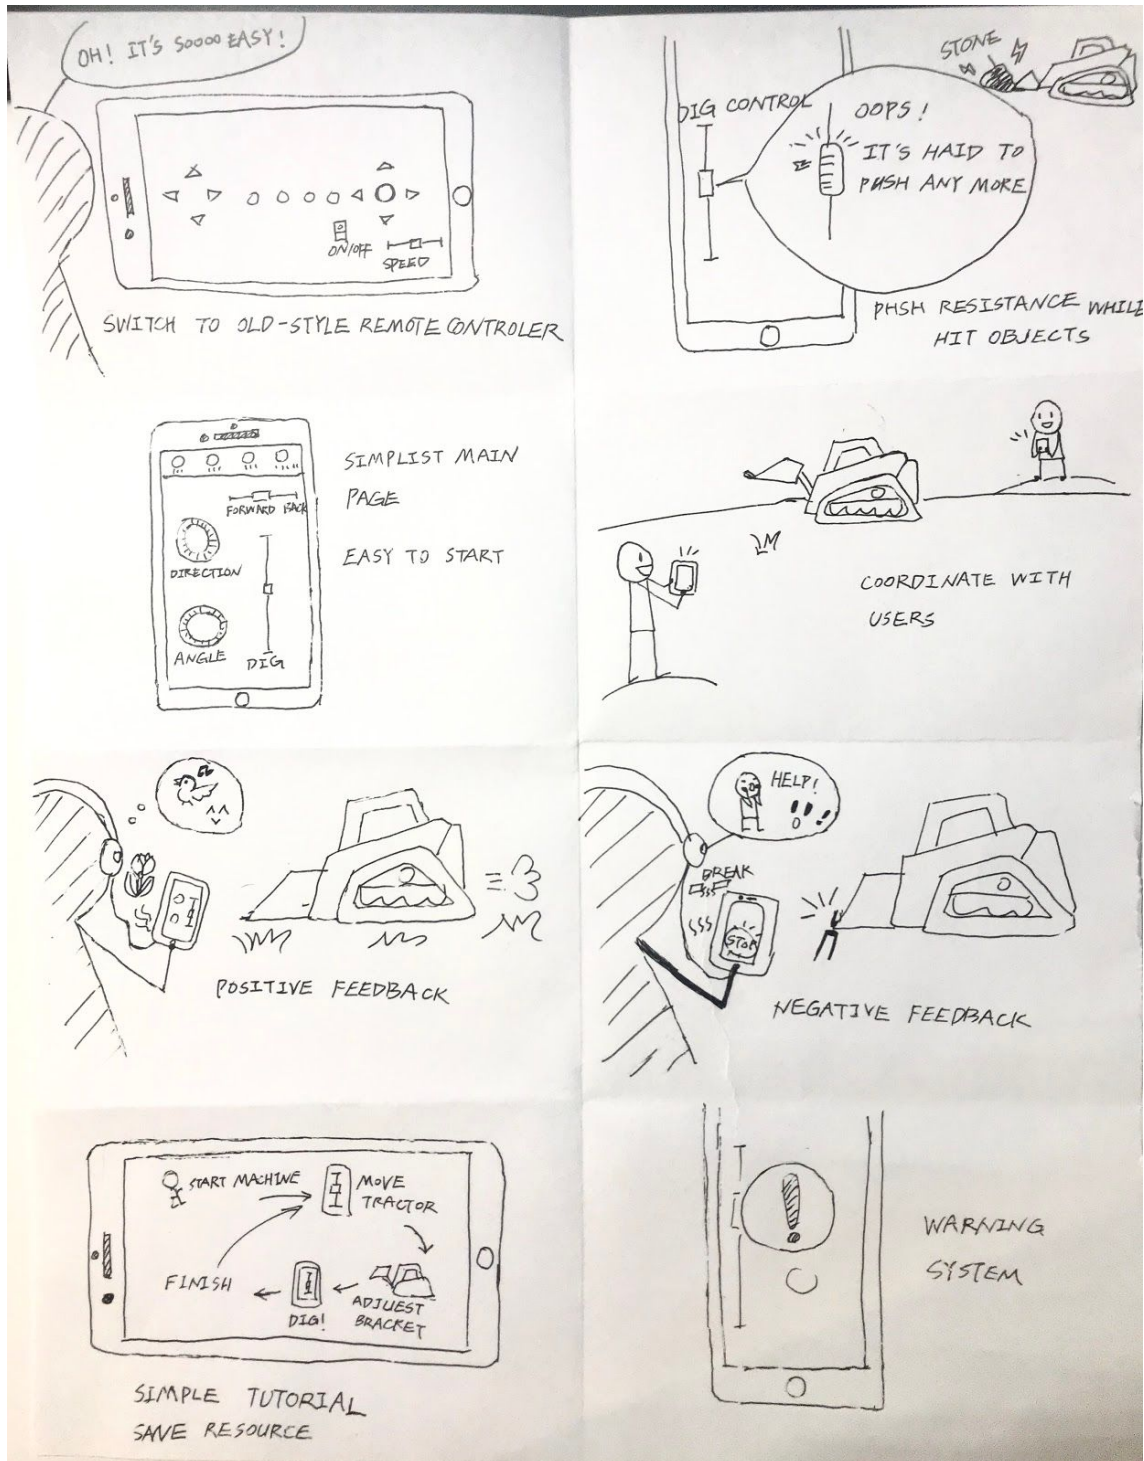 OH! IT'S SOOOO EASY!
ON/OFF
SPEED
SWITCH TO OLD-STYLE REMOTE CONTROLER
STONE
DIG CONTROL
OOPS!
IT'S HAID TO
PUSH ANY MORE
PHSH RESISTANCE WHILE
HIT OBJECTS
FORWARD BACK
DIRECTION
ANGLE
DIG
SIMPLIST MAIN
PAGE
EASY TO START
COORDINATE WITH
USERS
POSITIVE FEEDBACK
HELP!
BREAK
STOP
NEGATIVE FEEDBACK
START MACHINE
MOVE
TRACTOR
FINISH
DIG!
ADJUEST
BRACKET
SIMPLE TUTORIAL
SAVE RESOURCE
WARNING
SYSTEM